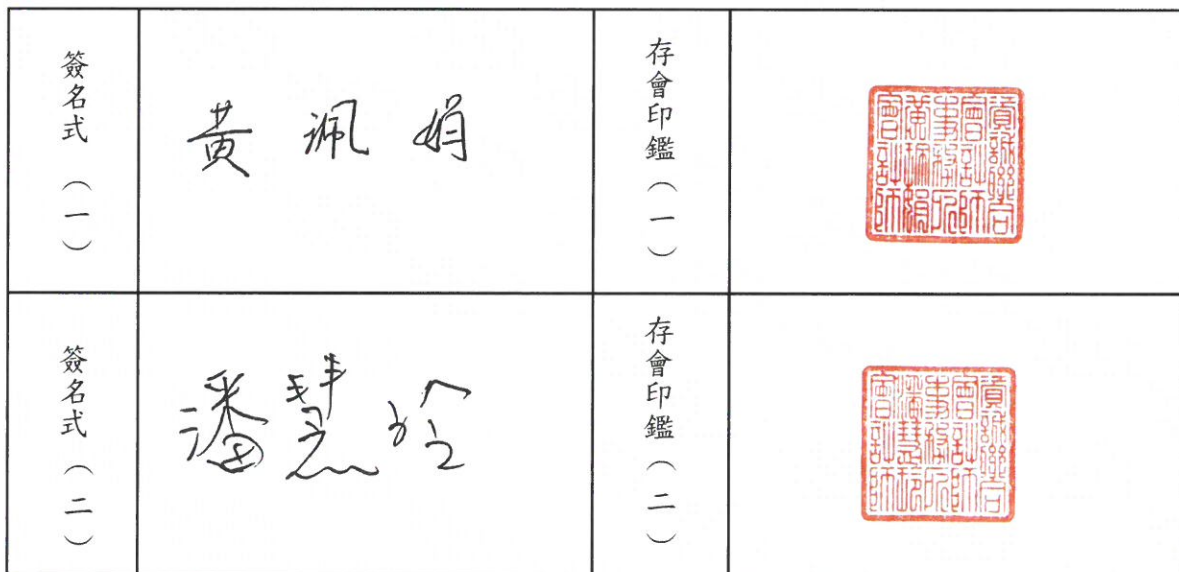 簽名式（一）
黃珮娟
存會印鑑（一）
資誠聯合
會計師
事務所
黃珮娟
會計師
簽名式（二）
潘慧玲
存會印鑑（二）
資誠聯合
會計師
事務所
潘慧玲
會計師